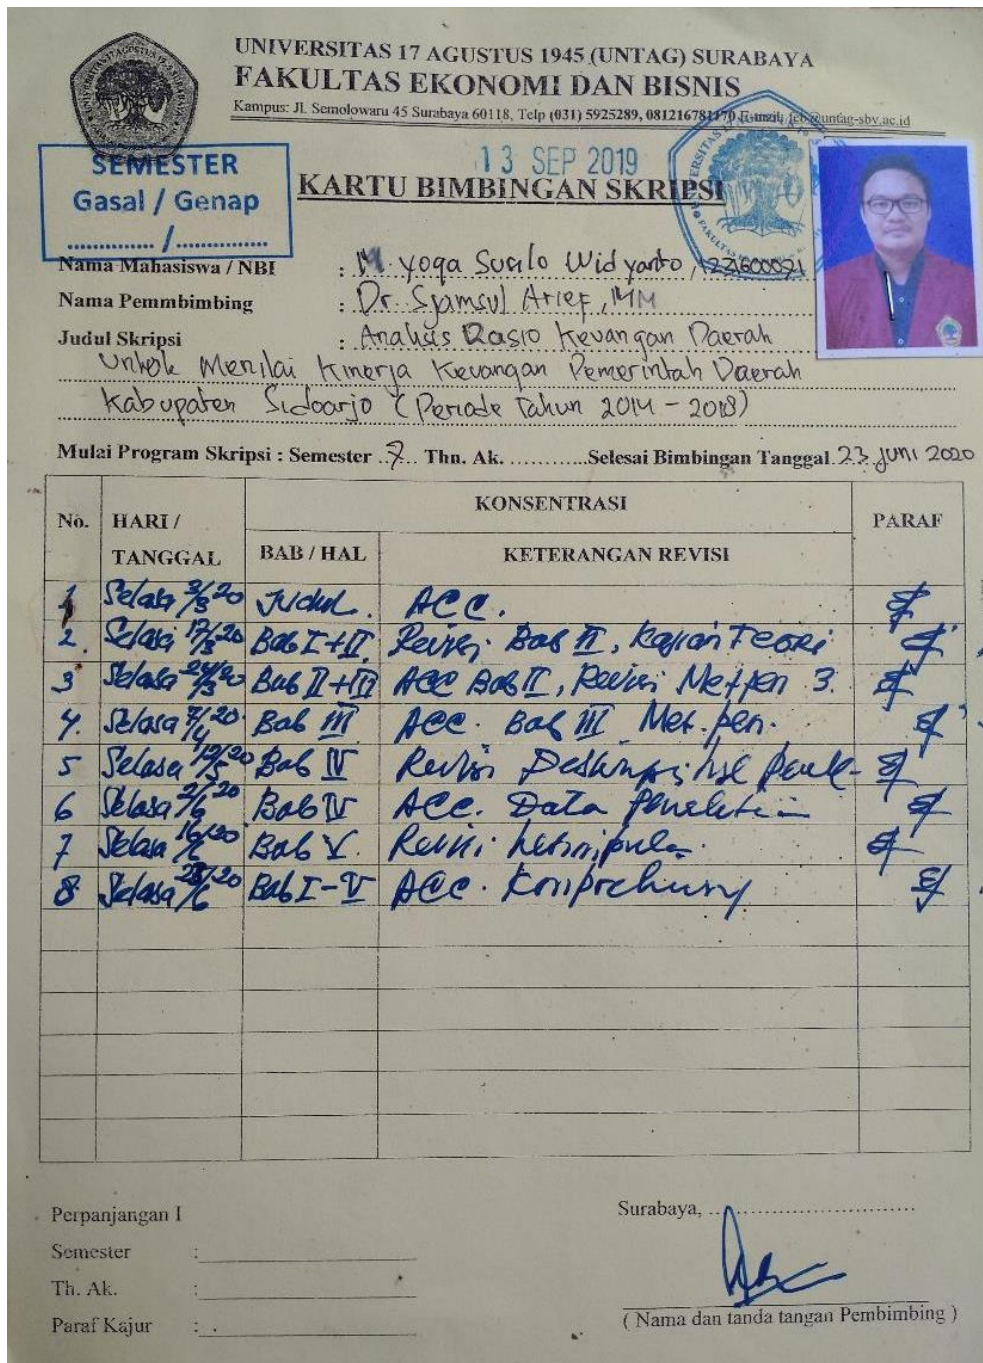 UNIVERSITAS 17 AGUSTUS 1945 (UNTAG) SURABAYA
FAKULTAS EKONOMI DAN BISNIS
Kampus: Jl. Semolowaru 45 Surabaya 60118, Telp (031) 5925289, 081216781170 E-mail: feb@untag-sby.ac.id
13 SEP 2019
SEMESTER
Gasal / Genap
............... / ...............
KARTU BIMBINGAN SKRIPSI
Nama Mahasiswa / NBI : M. Yoga Susilo Widyanto, 1221600091
Nama Pemmbimbing : Dr. Sjamsul Arief, MM
Judul Skripsi : Analisis Rasio Keuangan Daerah
Untuk Menilai Kinerja Keuangan Pemerintah Daerah
Kabupaten Sidoarjo (Periode Tahun 2014 - 2018)
Mulai Program Skripsi : Semester 7 Thn. Ak. ............ Selesai Bimbingan Tanggal 23 Juni 2020
No. HARI / TANGGAL KONSENTRASI PARAF
BAB / HAL KETERANGAN REVISI
1 Selasa 3/3 20 Judul. ACC.
2. Selasa 17/3 20 Bab I+II Revisi Bab II, Kajian Teori
3 Selasa 24/3 20 Bab II+III ACC Bab II, Revisi Metpen 3.
4. Selasa 7/4 20 Bab III ACC. Bab III Met. pen.
5 Selasa 12/5 20 Bab IV Revisi Deskripsi
6 Selasa 2/6 20 Bab IV ACC. Data Penelitian
7 Selasa 16/6 20 Bab V Revisi Kesimpulan.
8 Selasa 23/6 20 Bab I-V ACC.
Perpanjangan I
Semester :
Th. Ak. :
Paraf Kajur :
Surabaya, ..............................
( Nama dan tanda tangan Pembimbing )